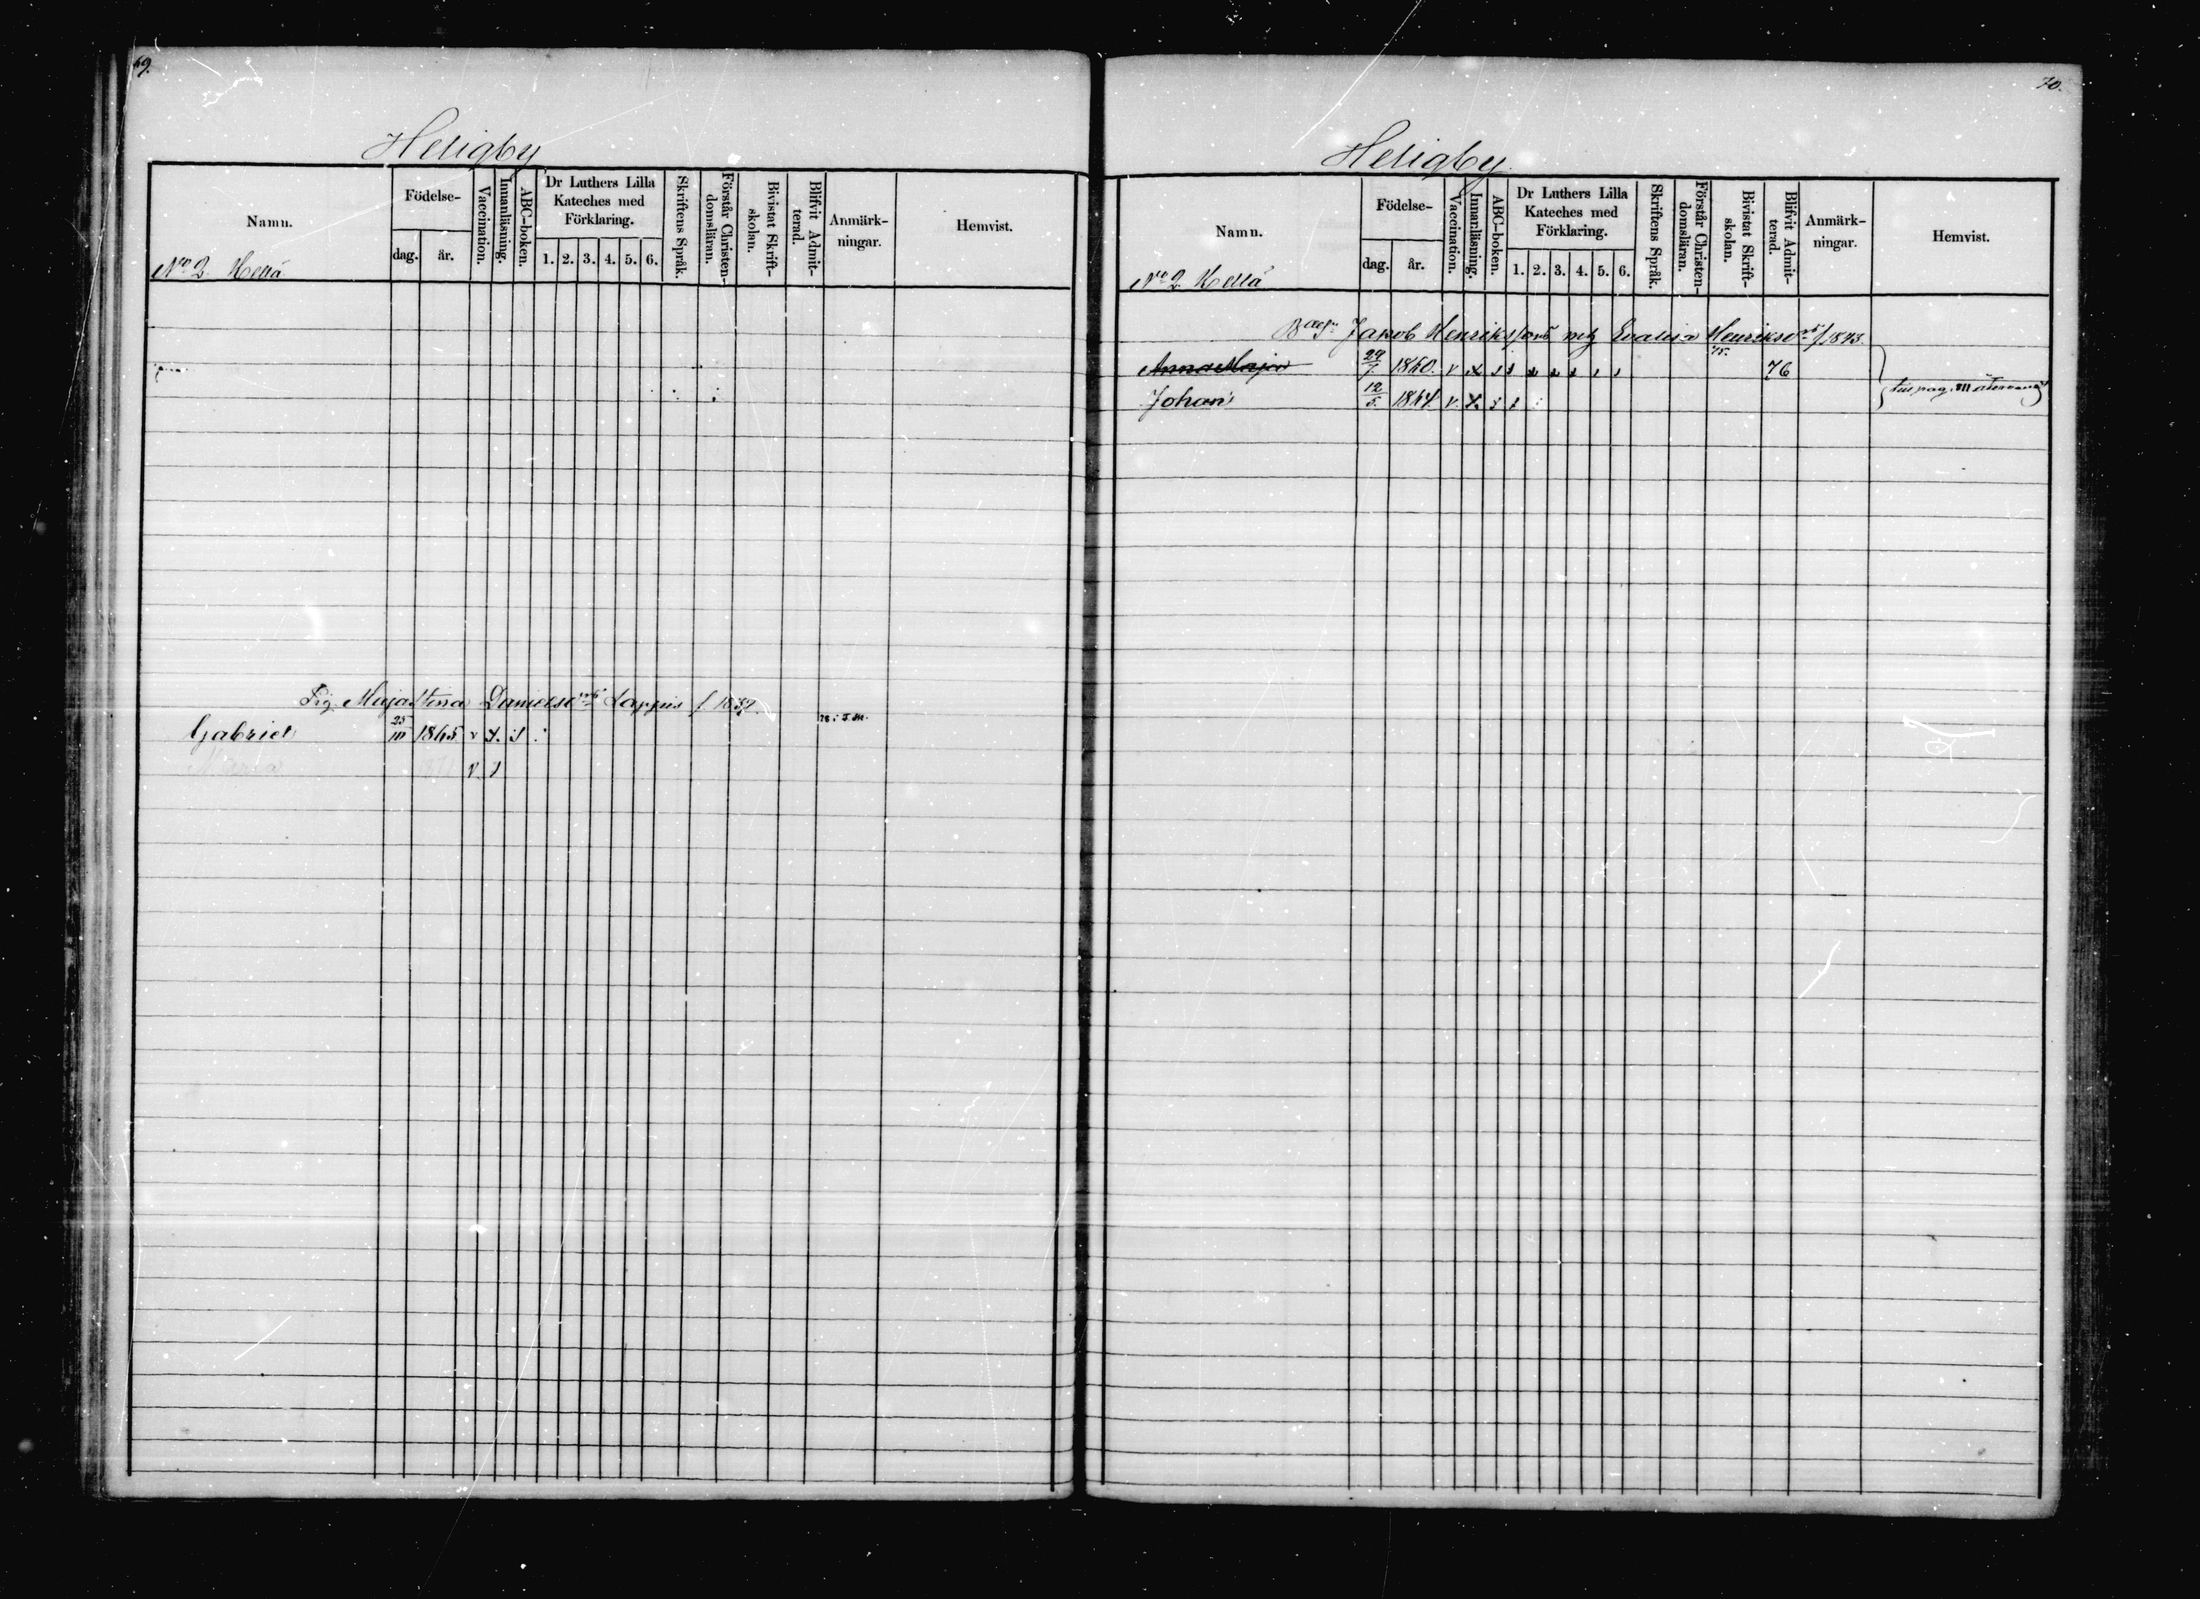 69.
Heligby
Namn.
Födelse-
dag.
år.
Vaccination.
Innanläsning.
ABC-boken.
Dr Luthers Lilla
Kateches med
Förklaring.
1. 2. 3. 4. 5. 6.
Skriftens Språk.
Förstår Christen-
domsläran.
Bivistat Skrift-
skolan.
Blifvit Admit-
terad.
Anmärk-
ningar.
Hemvist.
No 2 Hellä
Majastina Danielsdr Lappis f. 1837.
Gabriel 25/III 1865 v
Maria 1871 v
70.
Heligby
Namn.
Födelse-
dag.
år.
Vaccination.
Innanläsning.
ABC-boken.
Dr Luthers Lilla
Kateches med
Förklaring.
1. 2. 3. 4. 5. 6.
Skriftens Språk.
Förstår Christen-
domsläran.
Bivistat Skrift-
skolan.
Blifvit Admit-
terad.
Anmärk-
ningar.
Hemvist.
No 2 Hellä
Jakob Henrikssons Henriksdr f 1843.
Anna Maja 29/7 1860. v 75. 76
Johan 12/5 1864 v.